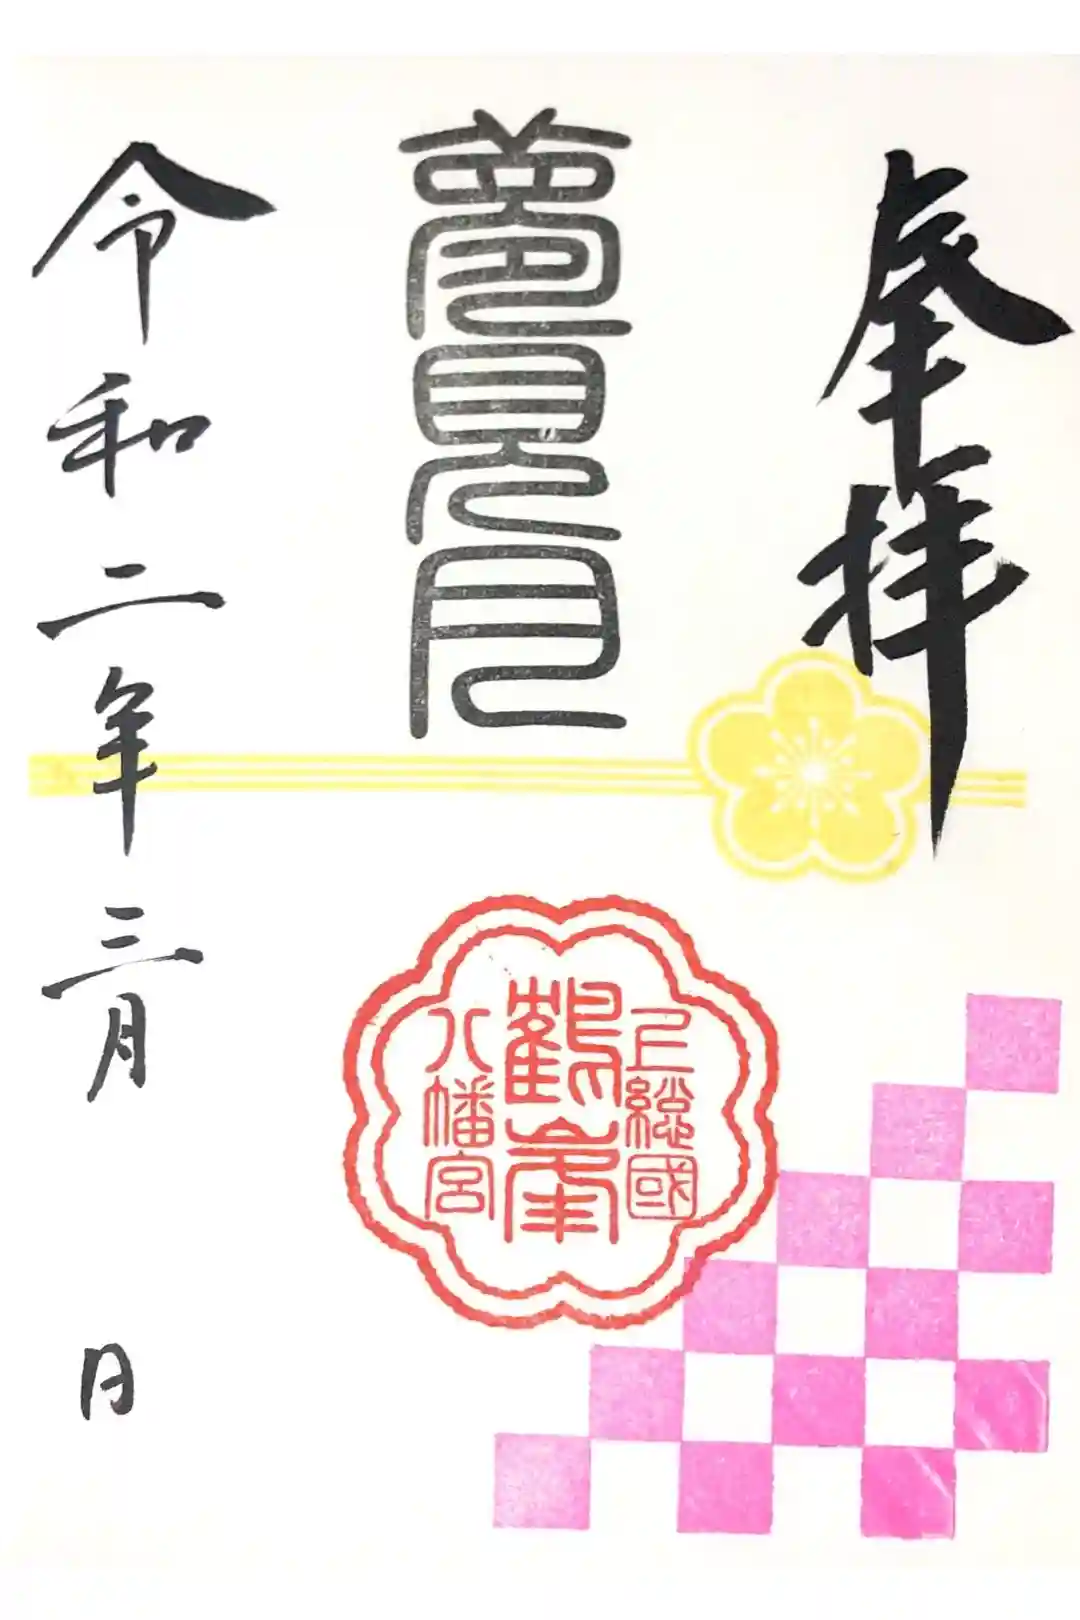 奉拝
夢見月
上総國
鶴峯
八幡宮
令和二年三月　日